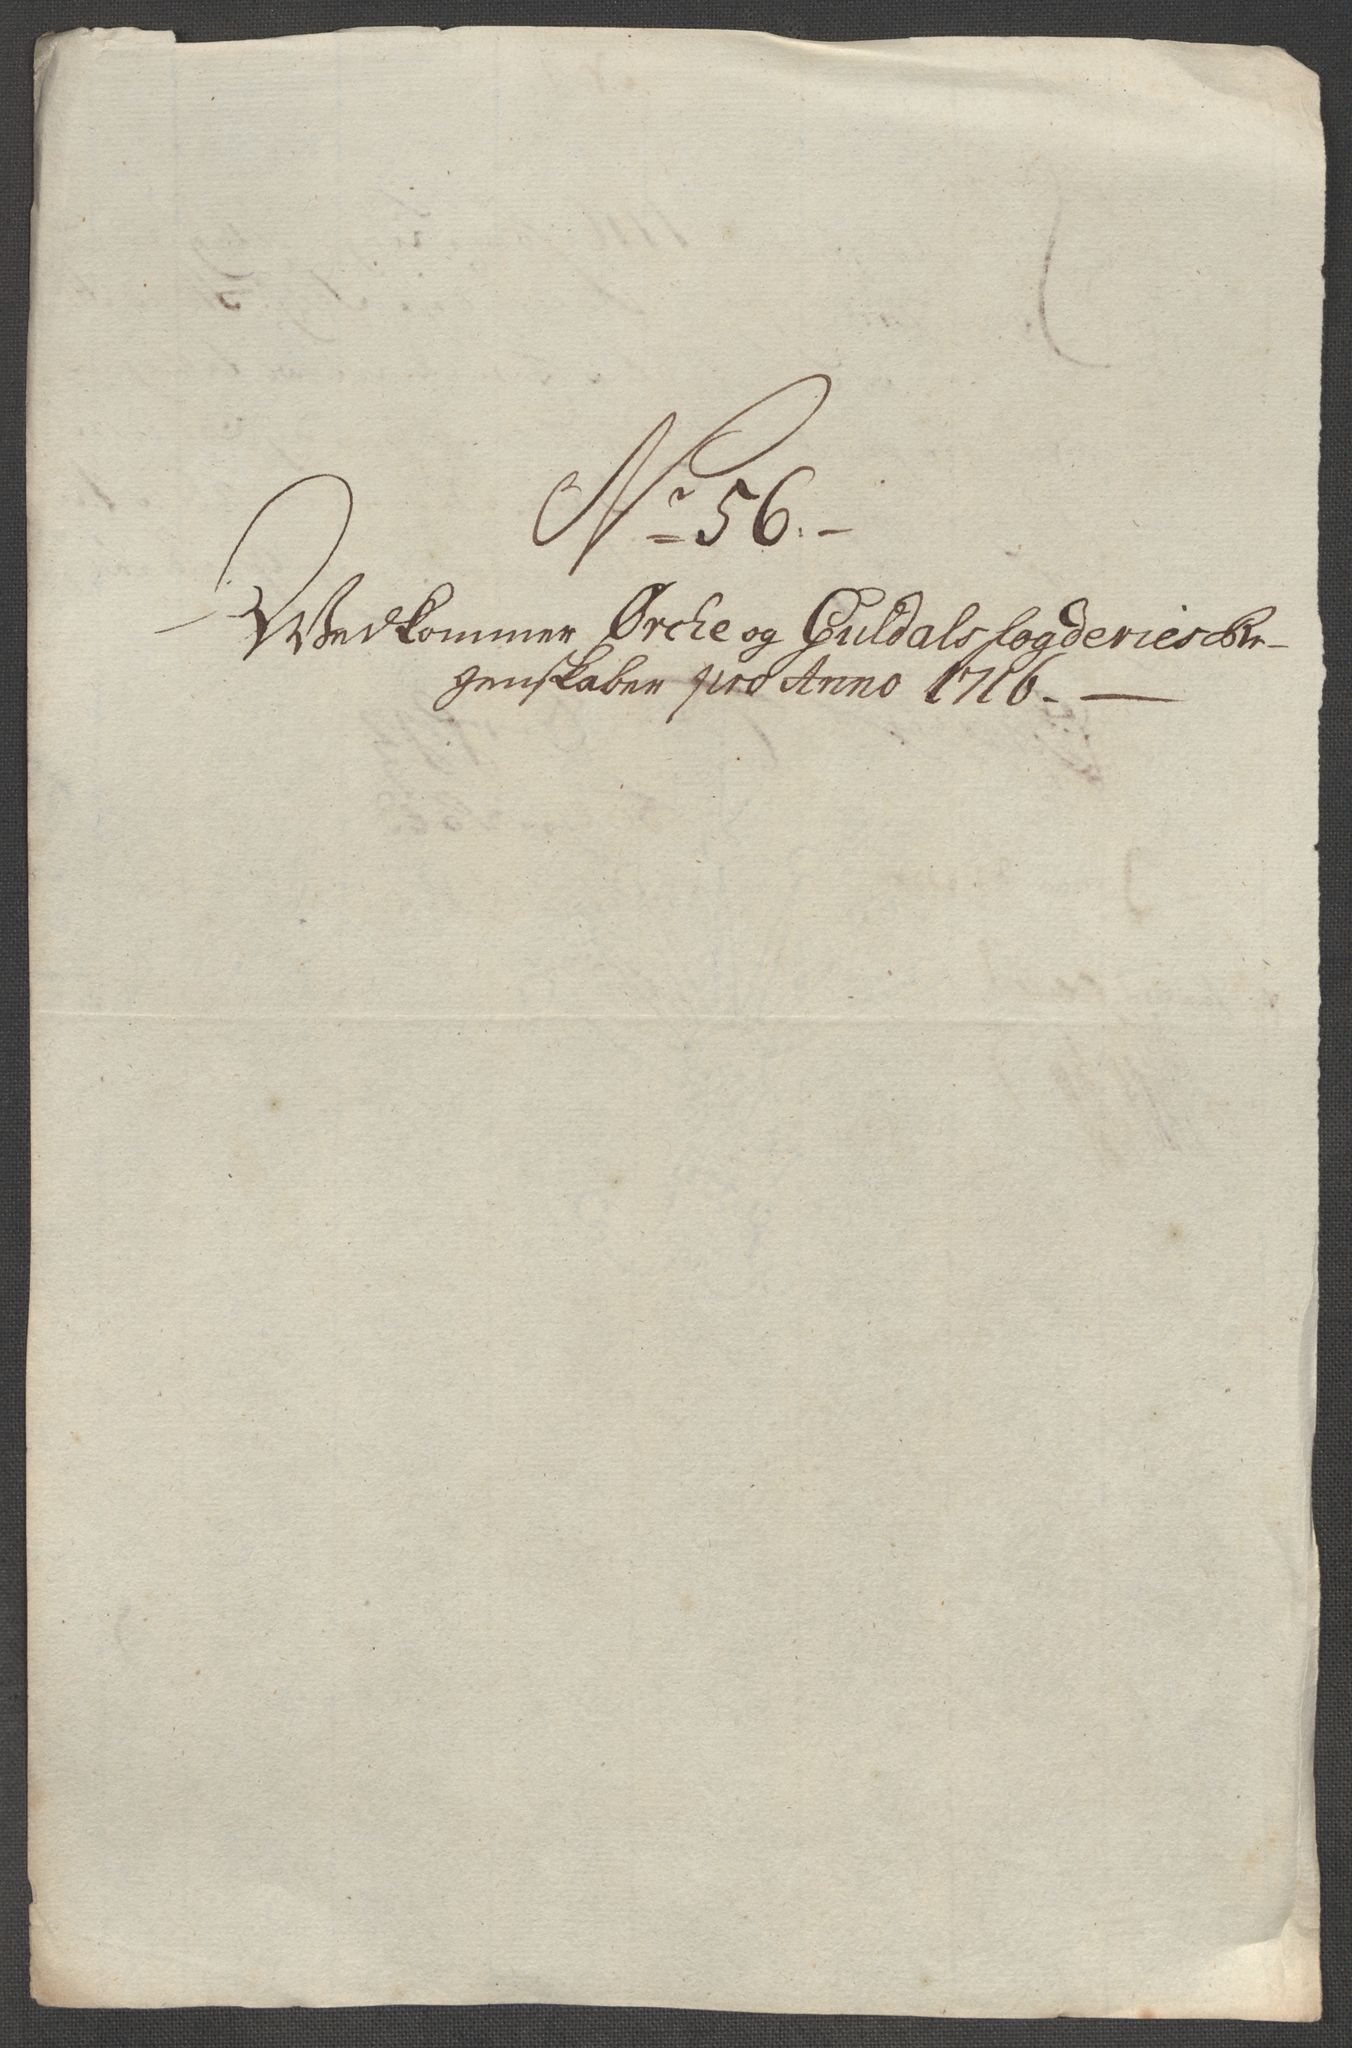 Nr 56.-
Wedkommer Ørche og Guldals fogderies Re-
genskaber pro Anno 1716. -